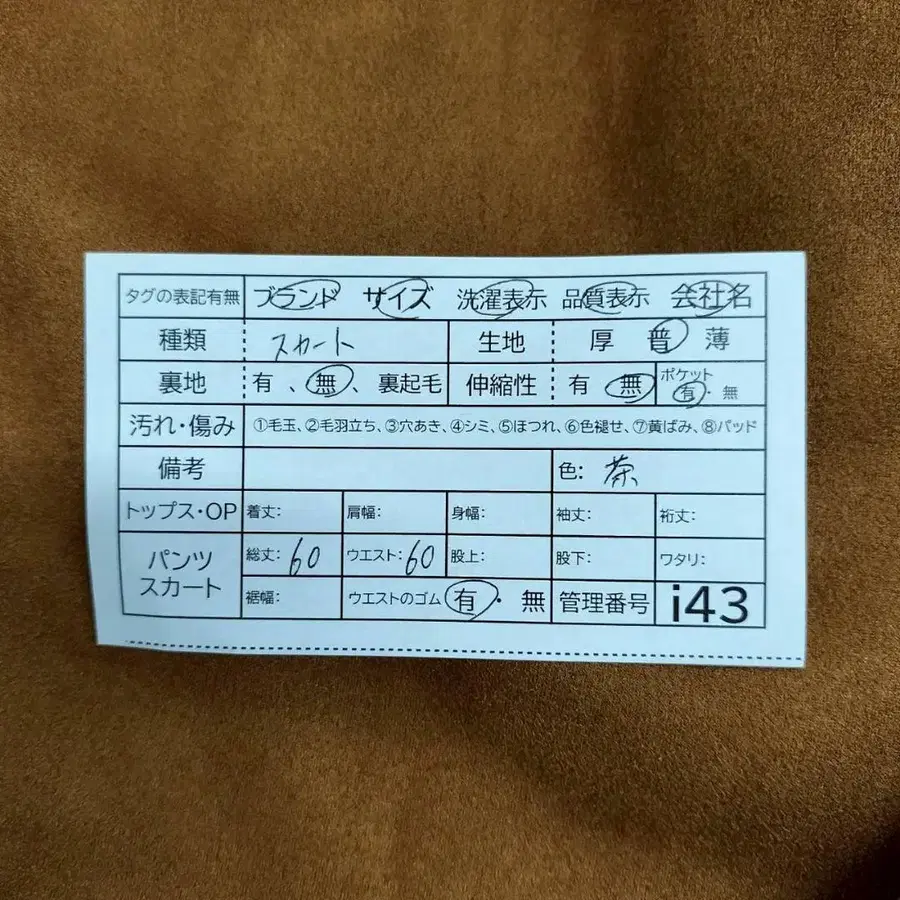 タグの表記有無 ブランド サイズ 洗濯表示 品質表示 会社名
種類 スカート 生地 厚 普 薄
裏地 有、無、裏起毛 伸縮性 有 無 ポケット 有・無
汚れ・傷み ①毛玉、②毛羽立ち、③穴あき、④シミ、⑤ほつれ、⑥色褪せ、⑦黄ばみ、⑧パッド
備考 色: 茶
トップス・OP 着丈: 肩幅: 身幅: 袖丈: 裄丈:
パンツ スカート 総丈: 60 ウエスト: 60 股上: 股下: ワタリ:
裾幅: ウエストのゴム 有・無 管理番号 i43